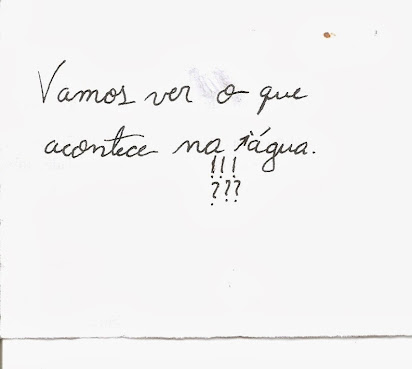 Vamos ver o que
acontece na água.
!!!
???